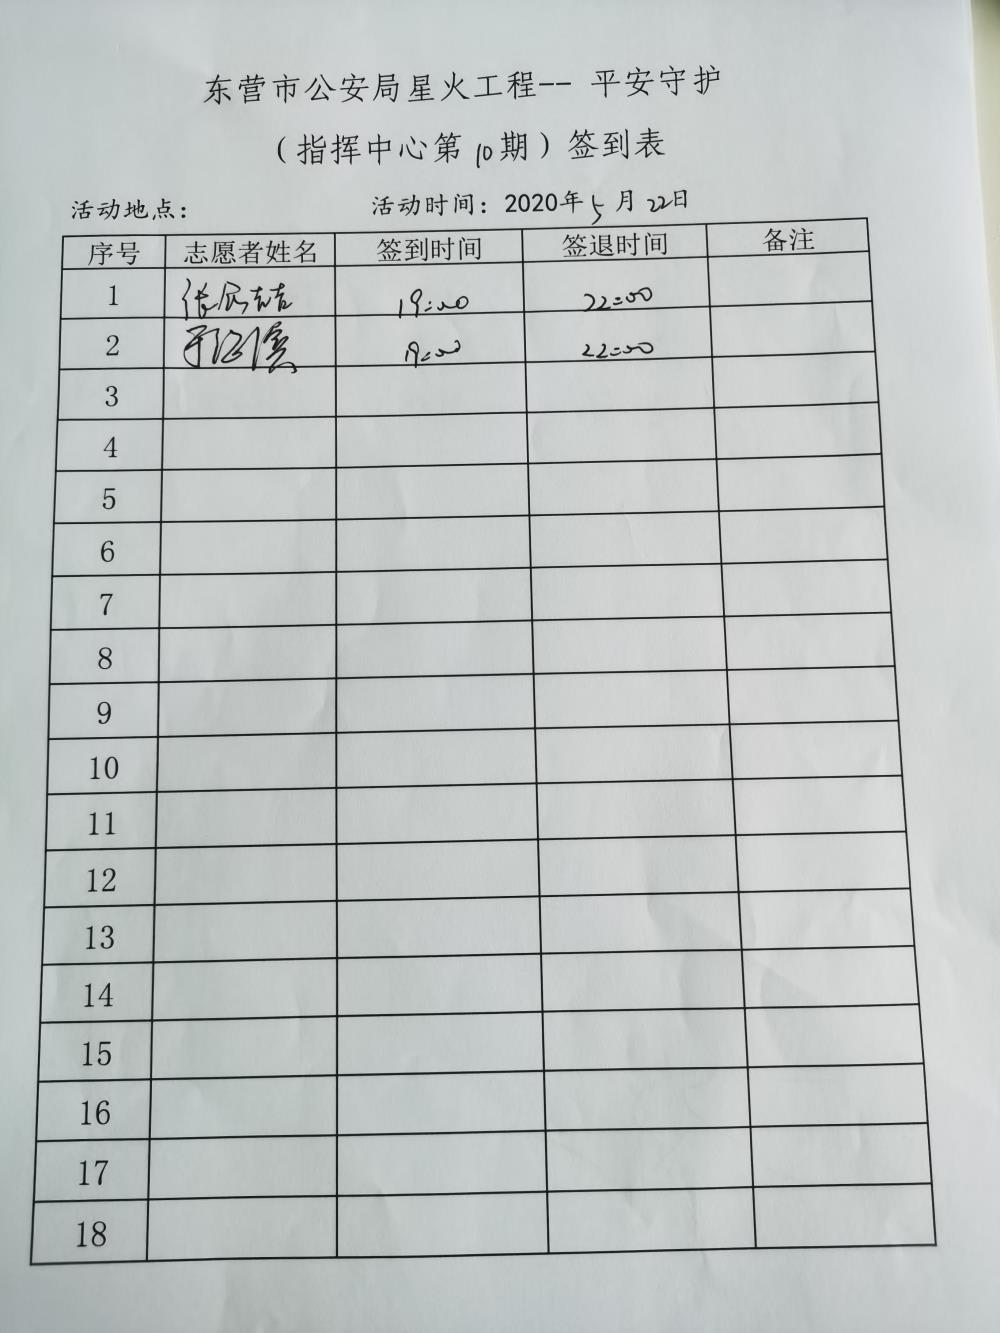 东营市公安局星火工程-- 平安守护
（指挥中心第10期）签到表
活动地点： 活动时间：2020年5月22日
序号 志愿者姓名 签到时间 签退时间 备注
1 19:00 22:00
2 19:00 22:00
3
4
5
6
7
8
9
10
11
12
13
14
15
16
17
18